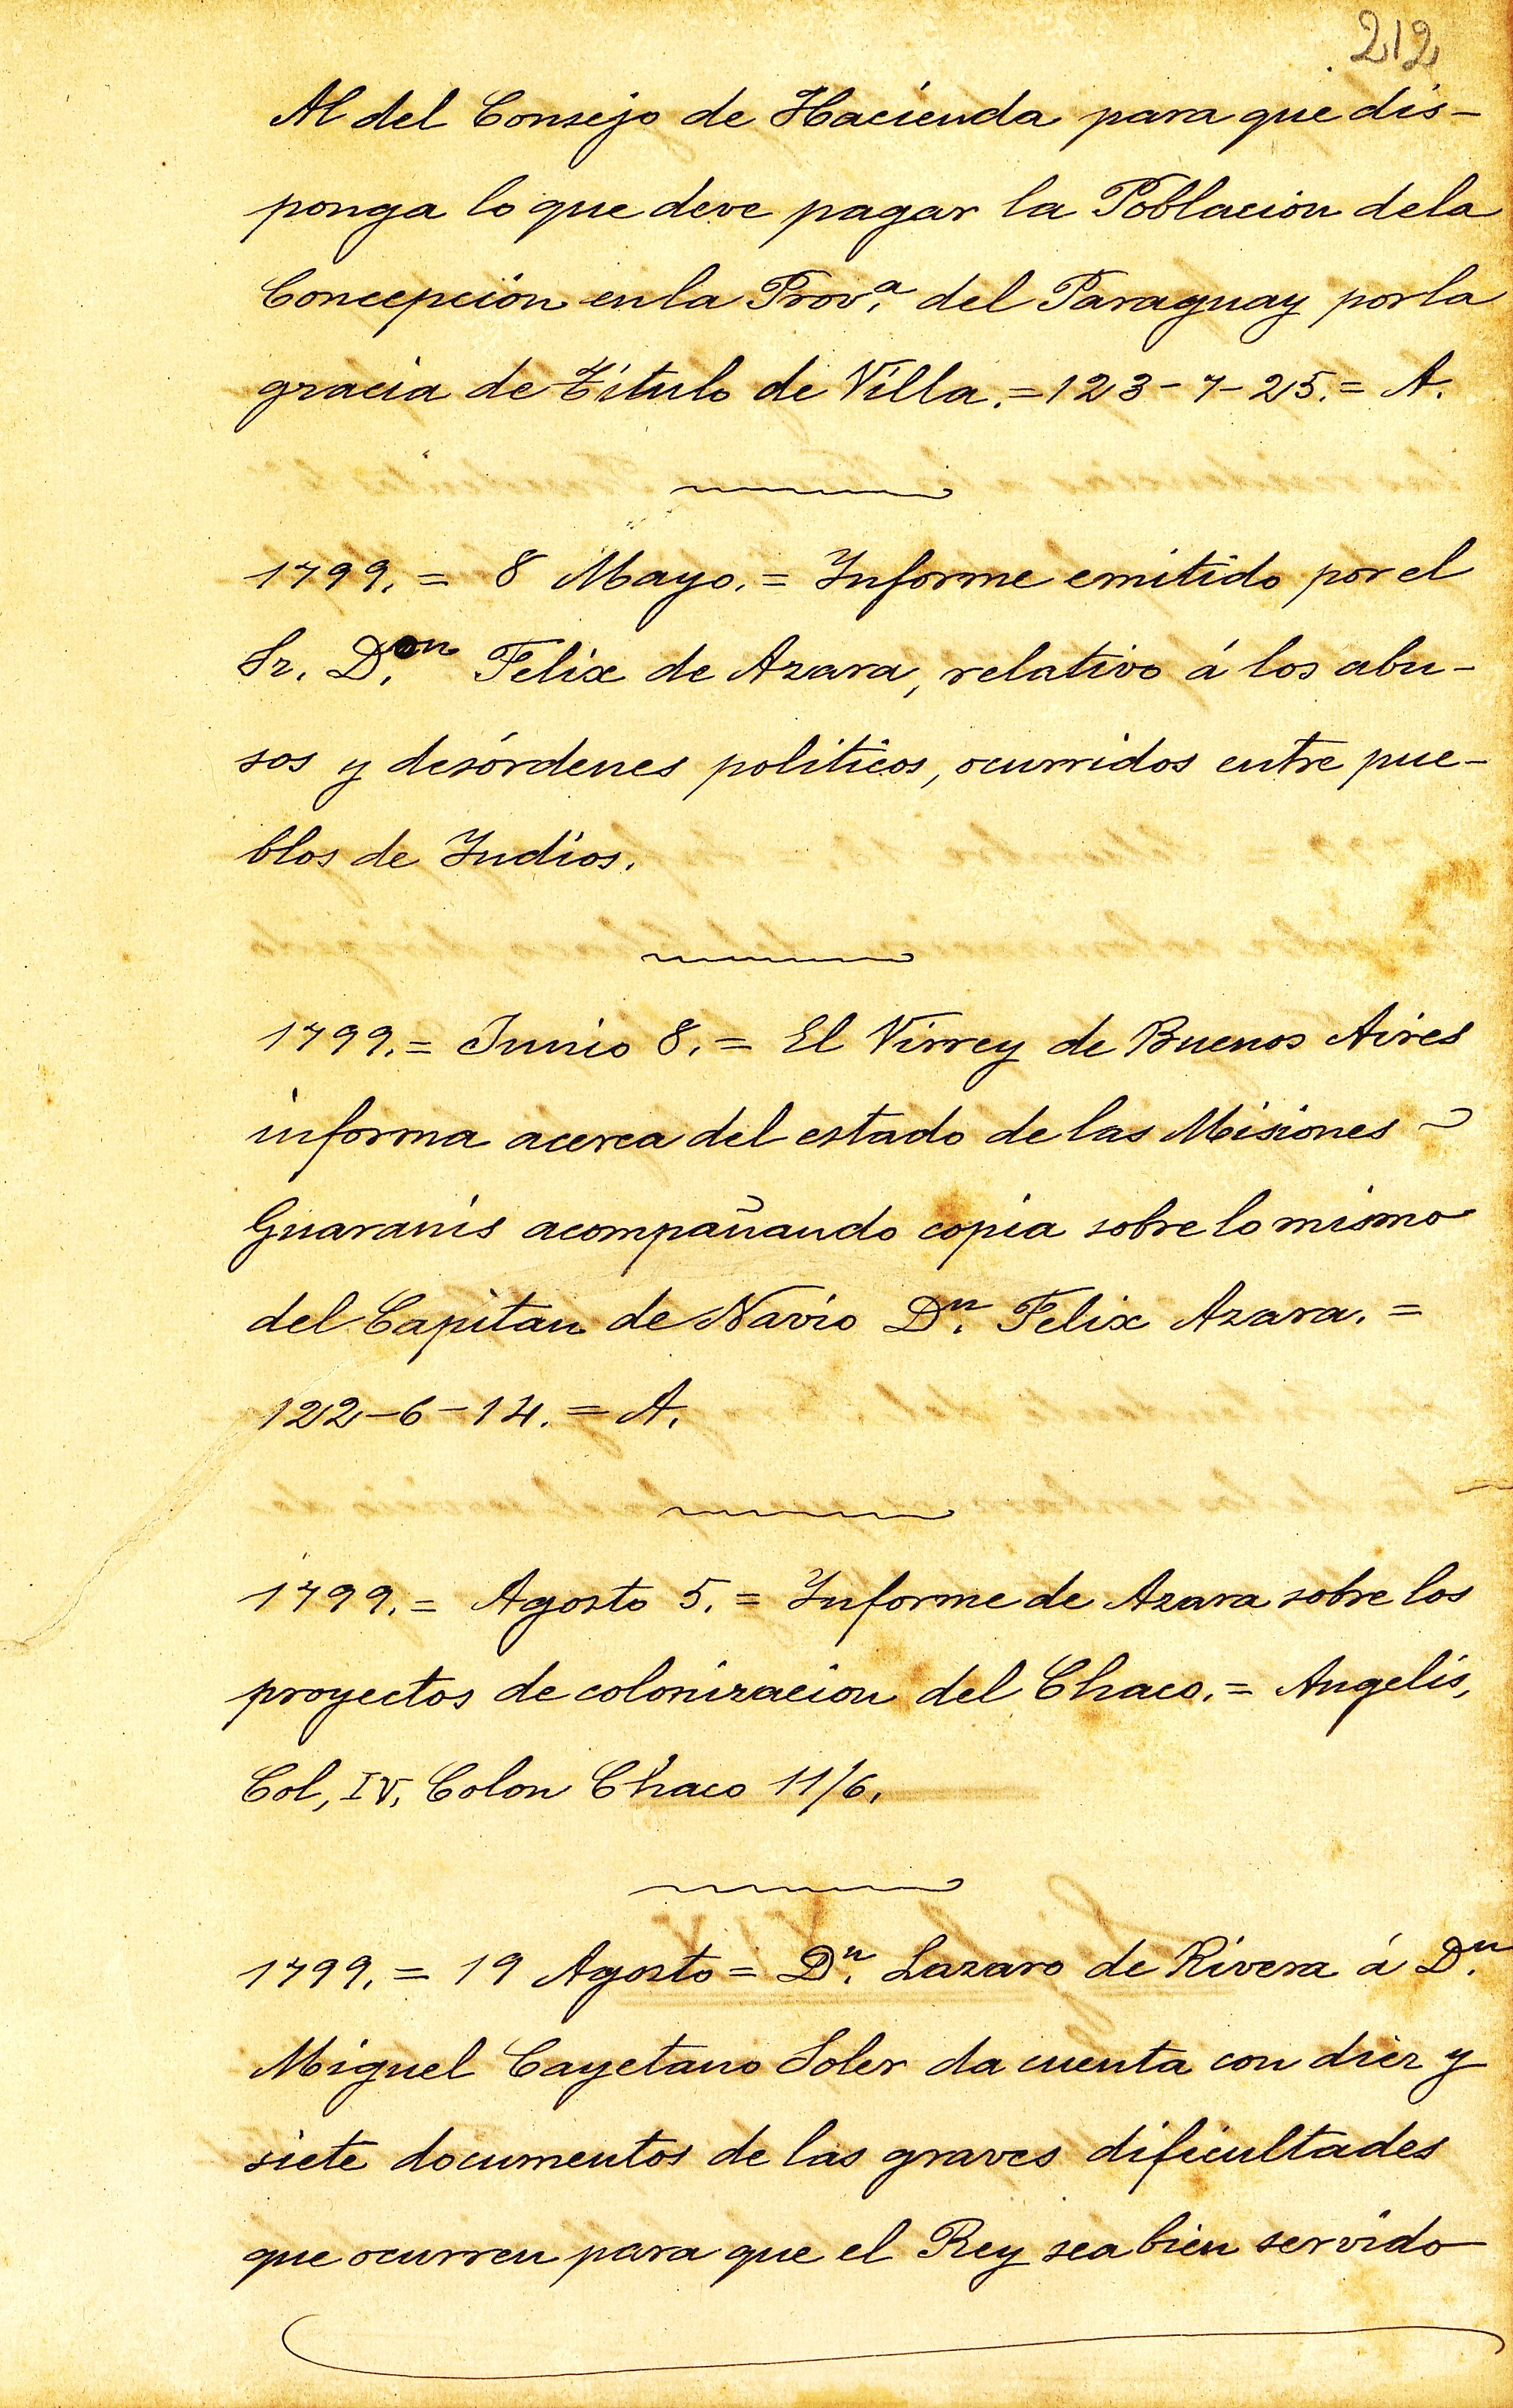 212
Al del Consejo de Hacienda para que dis-
ponga lo que deve pagar la Poblacion dela
Concepción enla Prov.ª del Paraguay porla
gracia de Título de Villa.=123-7-25.= A.
1799.= 8 Mayo.= Informe emitido por el
Sr. D.on Felix de Azara, relativo á los abu-
sos y desórdenes politicos, ocurridos entre pue-
blos de Indios.
1799.= Junio 8.= El Virrey de Buenos Aires
informa acerca del estado de las Misiones
Guaranis acompañando copia sobre lo mismo
del Capitan de Navio D.n Felix Azara.=
122-6-14.= A.
1799.= Agosto 5.= Informe de Azara sobre los
proyectos de colonizacion del Chaco.= Angelis,
Col, IV, Colon Chaco 11/6.
1799.= 19 Agosto= D.n Lazaro de Rivera á D.n
Miguel Cayetano Soler da cuenta con diez y
siete documentos de las graves dificultades
que ocurren para que el Rey sea bien servido